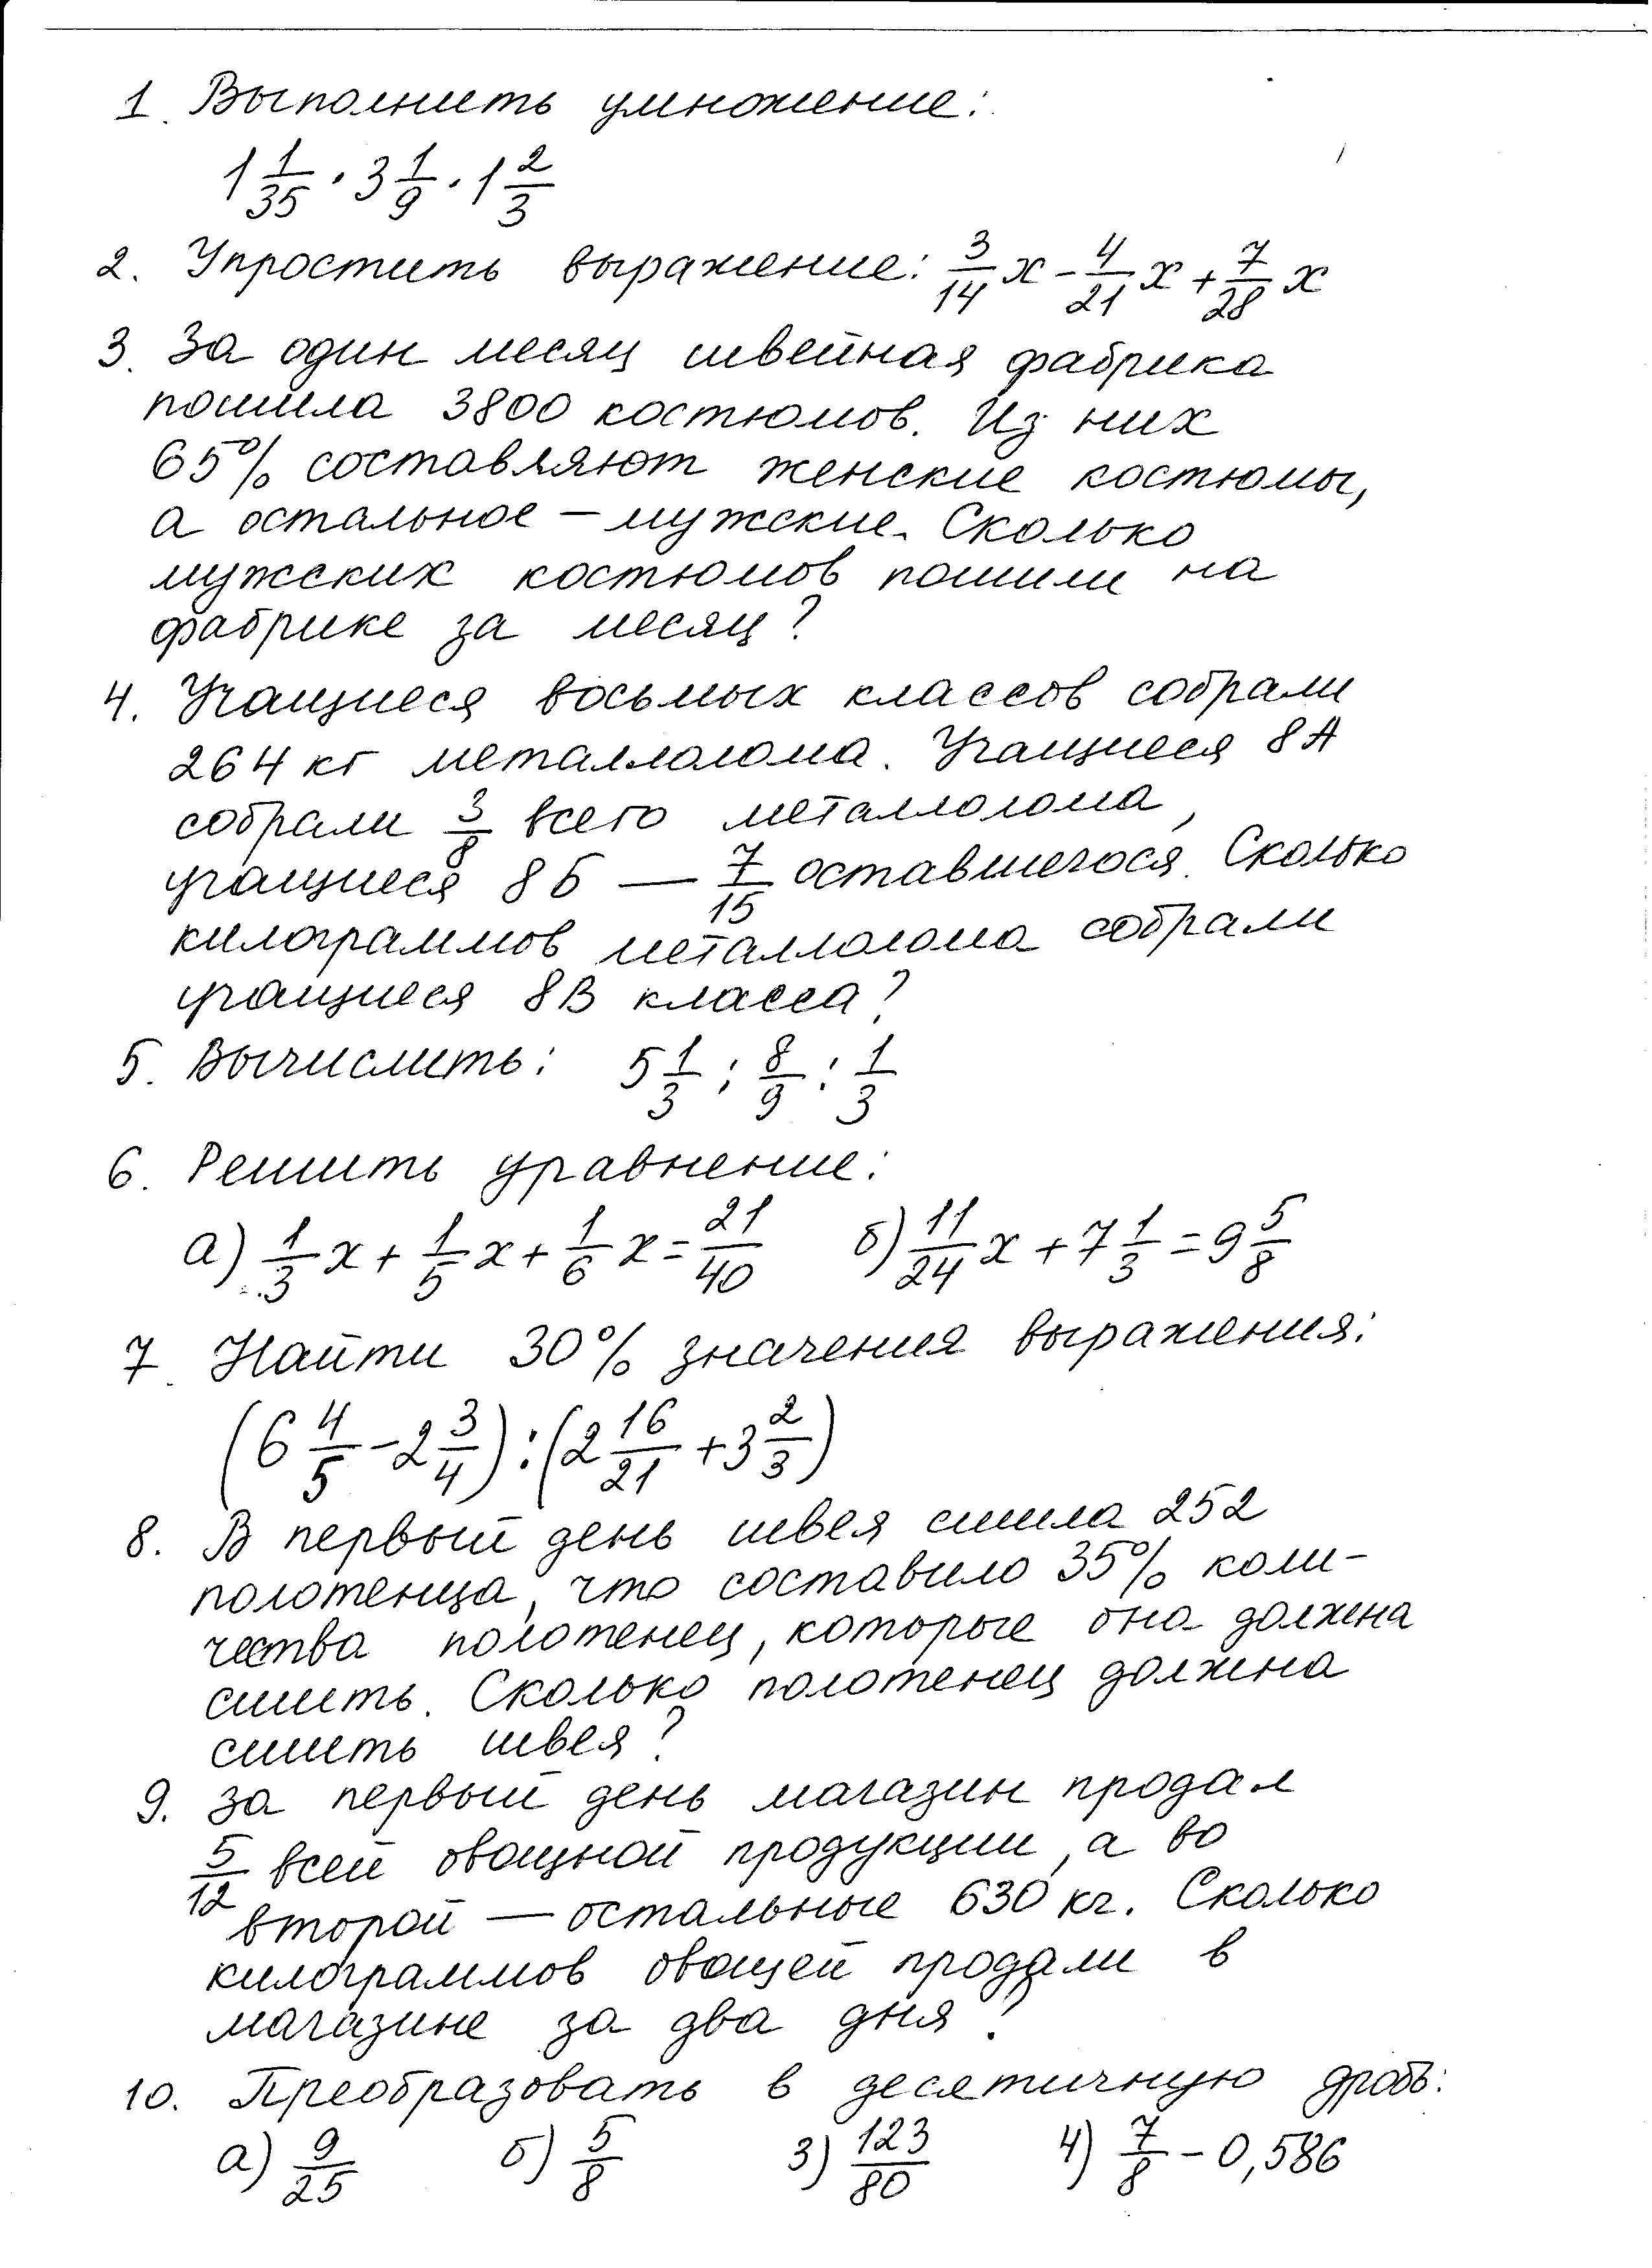 1. Выполнить умножение:
1 1/35 · 3 1/9 · 1 2/3
2. Упростить выражение: 3/14 x - 4/21 x + 7/28 x
3. За один месяц швейная фабрика
пошила 3800 костюмов. Из них
65% составляют женские костюмы,
а остальное — мужские. Сколько
мужских костюмов пошили на
фабрике за месяц?
4. Учащиеся восьмых классов собрали
264 кг металлолома. Учащиеся 8А
собрали 3/8 всего металлолома,
учащиеся 8б — 7/15 оставшегося. Сколько
килограммов металлолома собрали
учащиеся 8В класса?
5. Вычислить: 5 1/3 : 8/9 : 1/3
6. Решить уравнение:
а) 1/3 x + 1/5 x + 1/6 x = 21/40 б) 11/24 x + 7 1/3 = 9 5/8
7. Найти 30% значения выражения:
(6 4/5 - 2 3/4) : (2 16/21 + 3 2/3)
8. В первый день швея сшила 252
полотенца, что составило 35% коли-
чества полотенец, которые она должна
сшить. Сколько полотенец должна
сшить швея?
9. За первый день магазин продал
5/12 всей овощной продукции, а во
второй — остальные 630 кг. Сколько
килограммов овощей продали в
магазине за два дня?
10. Преобразовать в десятичную дробь:
а) 9/25 б) 5/8 3) 123/80 4) 7/8 - 0,586